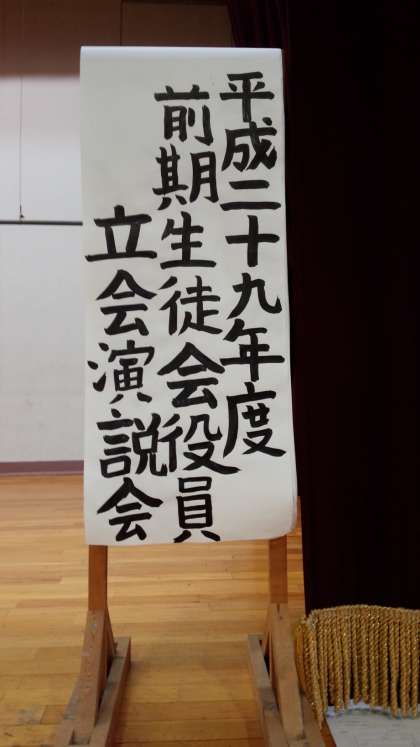 平成二十九年度
前期生徒会役員
立会演説会